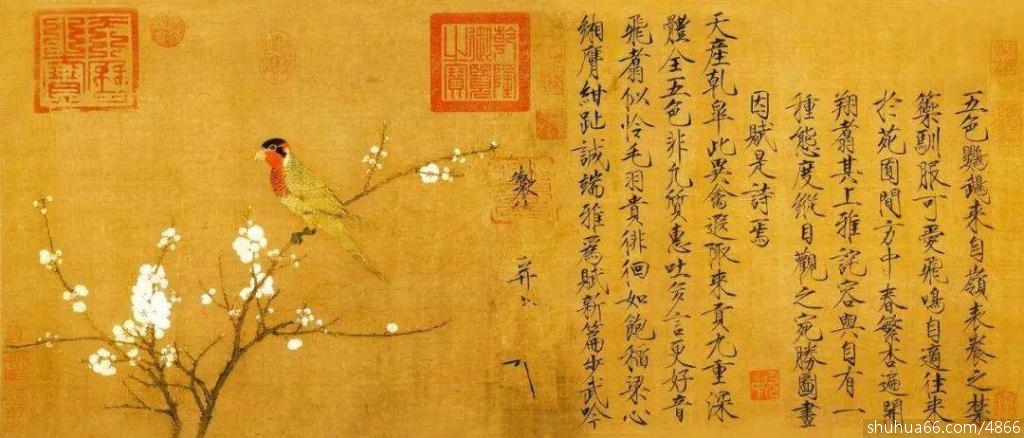 五色鸚鵡來自嶺表養之禁
籞馴服可愛飛鳴自適往來
於苑囿間方中春繁杏遍開
翔翥其上雅詫容與自有一
種態度縱目觀之宛勝圖畫
因賦是詩焉
天產乾皋此異禽遐陬來貢九重深
體全五色非凡質惠吐多言更好音
飛翥似怜毛羽貴徘徊如飽稻粱心
緗膺紺趾誠端雅爲賦新篇步武吟
乾隆御覽之寶
shuhua66.com/4866